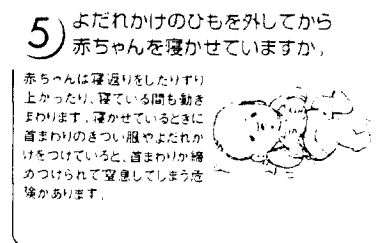 5) よだれかけのひもを外してから
赤ちゃんを寝かせていますか。
赤ちゃんは寝返りをしたりずり
上がったり、寝ている間も動き
まわります。寝かせているときに
首まわりのきつい服やよだれか
けをつけていると、首まわりが締
めつけられて窒息してしまう危
険があります。